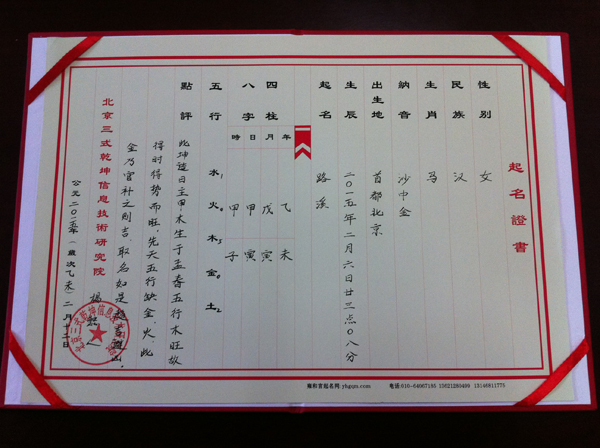 起名證書
性别 女
民族 汉
生肖 马
納音 沙中金
出生地 首都北京
生辰 二〇一五年二月六日廿三点〇八分
起名 路溪
年 乙未
四柱 月 戊寅
八字 日 甲寅
時 甲子
五行 水1 火0 木5 金0 土2
點評 此坤造日主甲木生于孟春五行木旺故
得时得势而旺,先天五行缺金、火此
金乃官补之则吉.取名如是
北京三式乾坤信息技術研究院
公元二〇一五年(歲次乙未)二月十二日
雍和宫起名网 yhgqm.com 电话:010-64067195 15621280499 13146811775